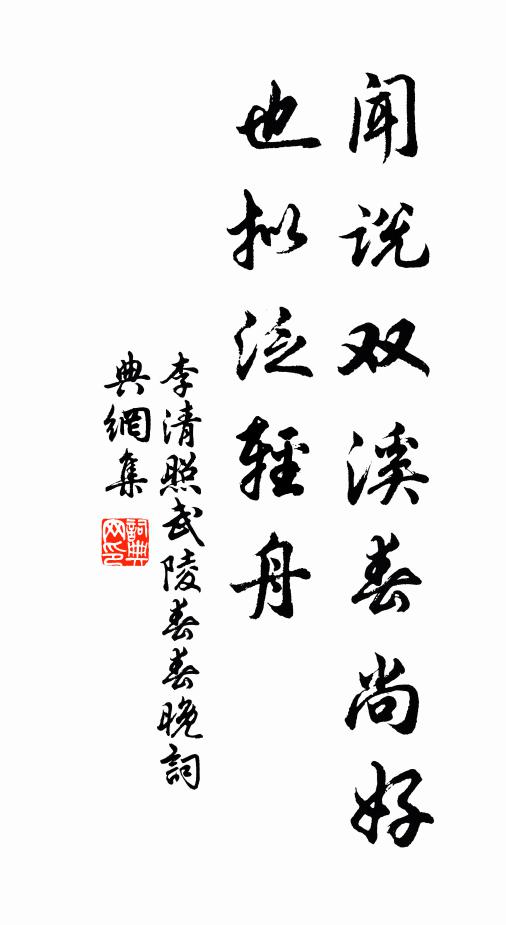 闻说双溪春尚好
也拟泛輕舟
李清照武陵春春晚詞
典網集
詞典网印